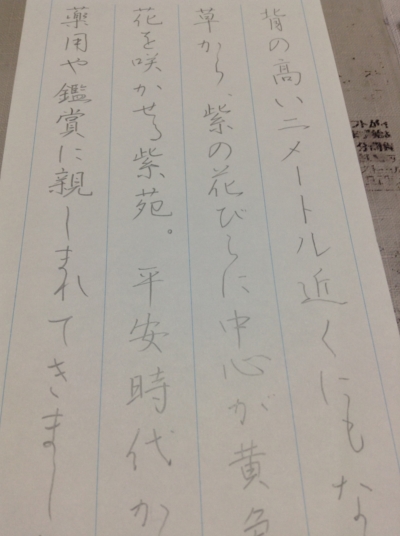 背の高い二メートル近くにもな
草から、紫の花びらに中心が黄色
花を咲かせる紫苑。 平安時代か
薬用や鑑賞に親しまれてきまし